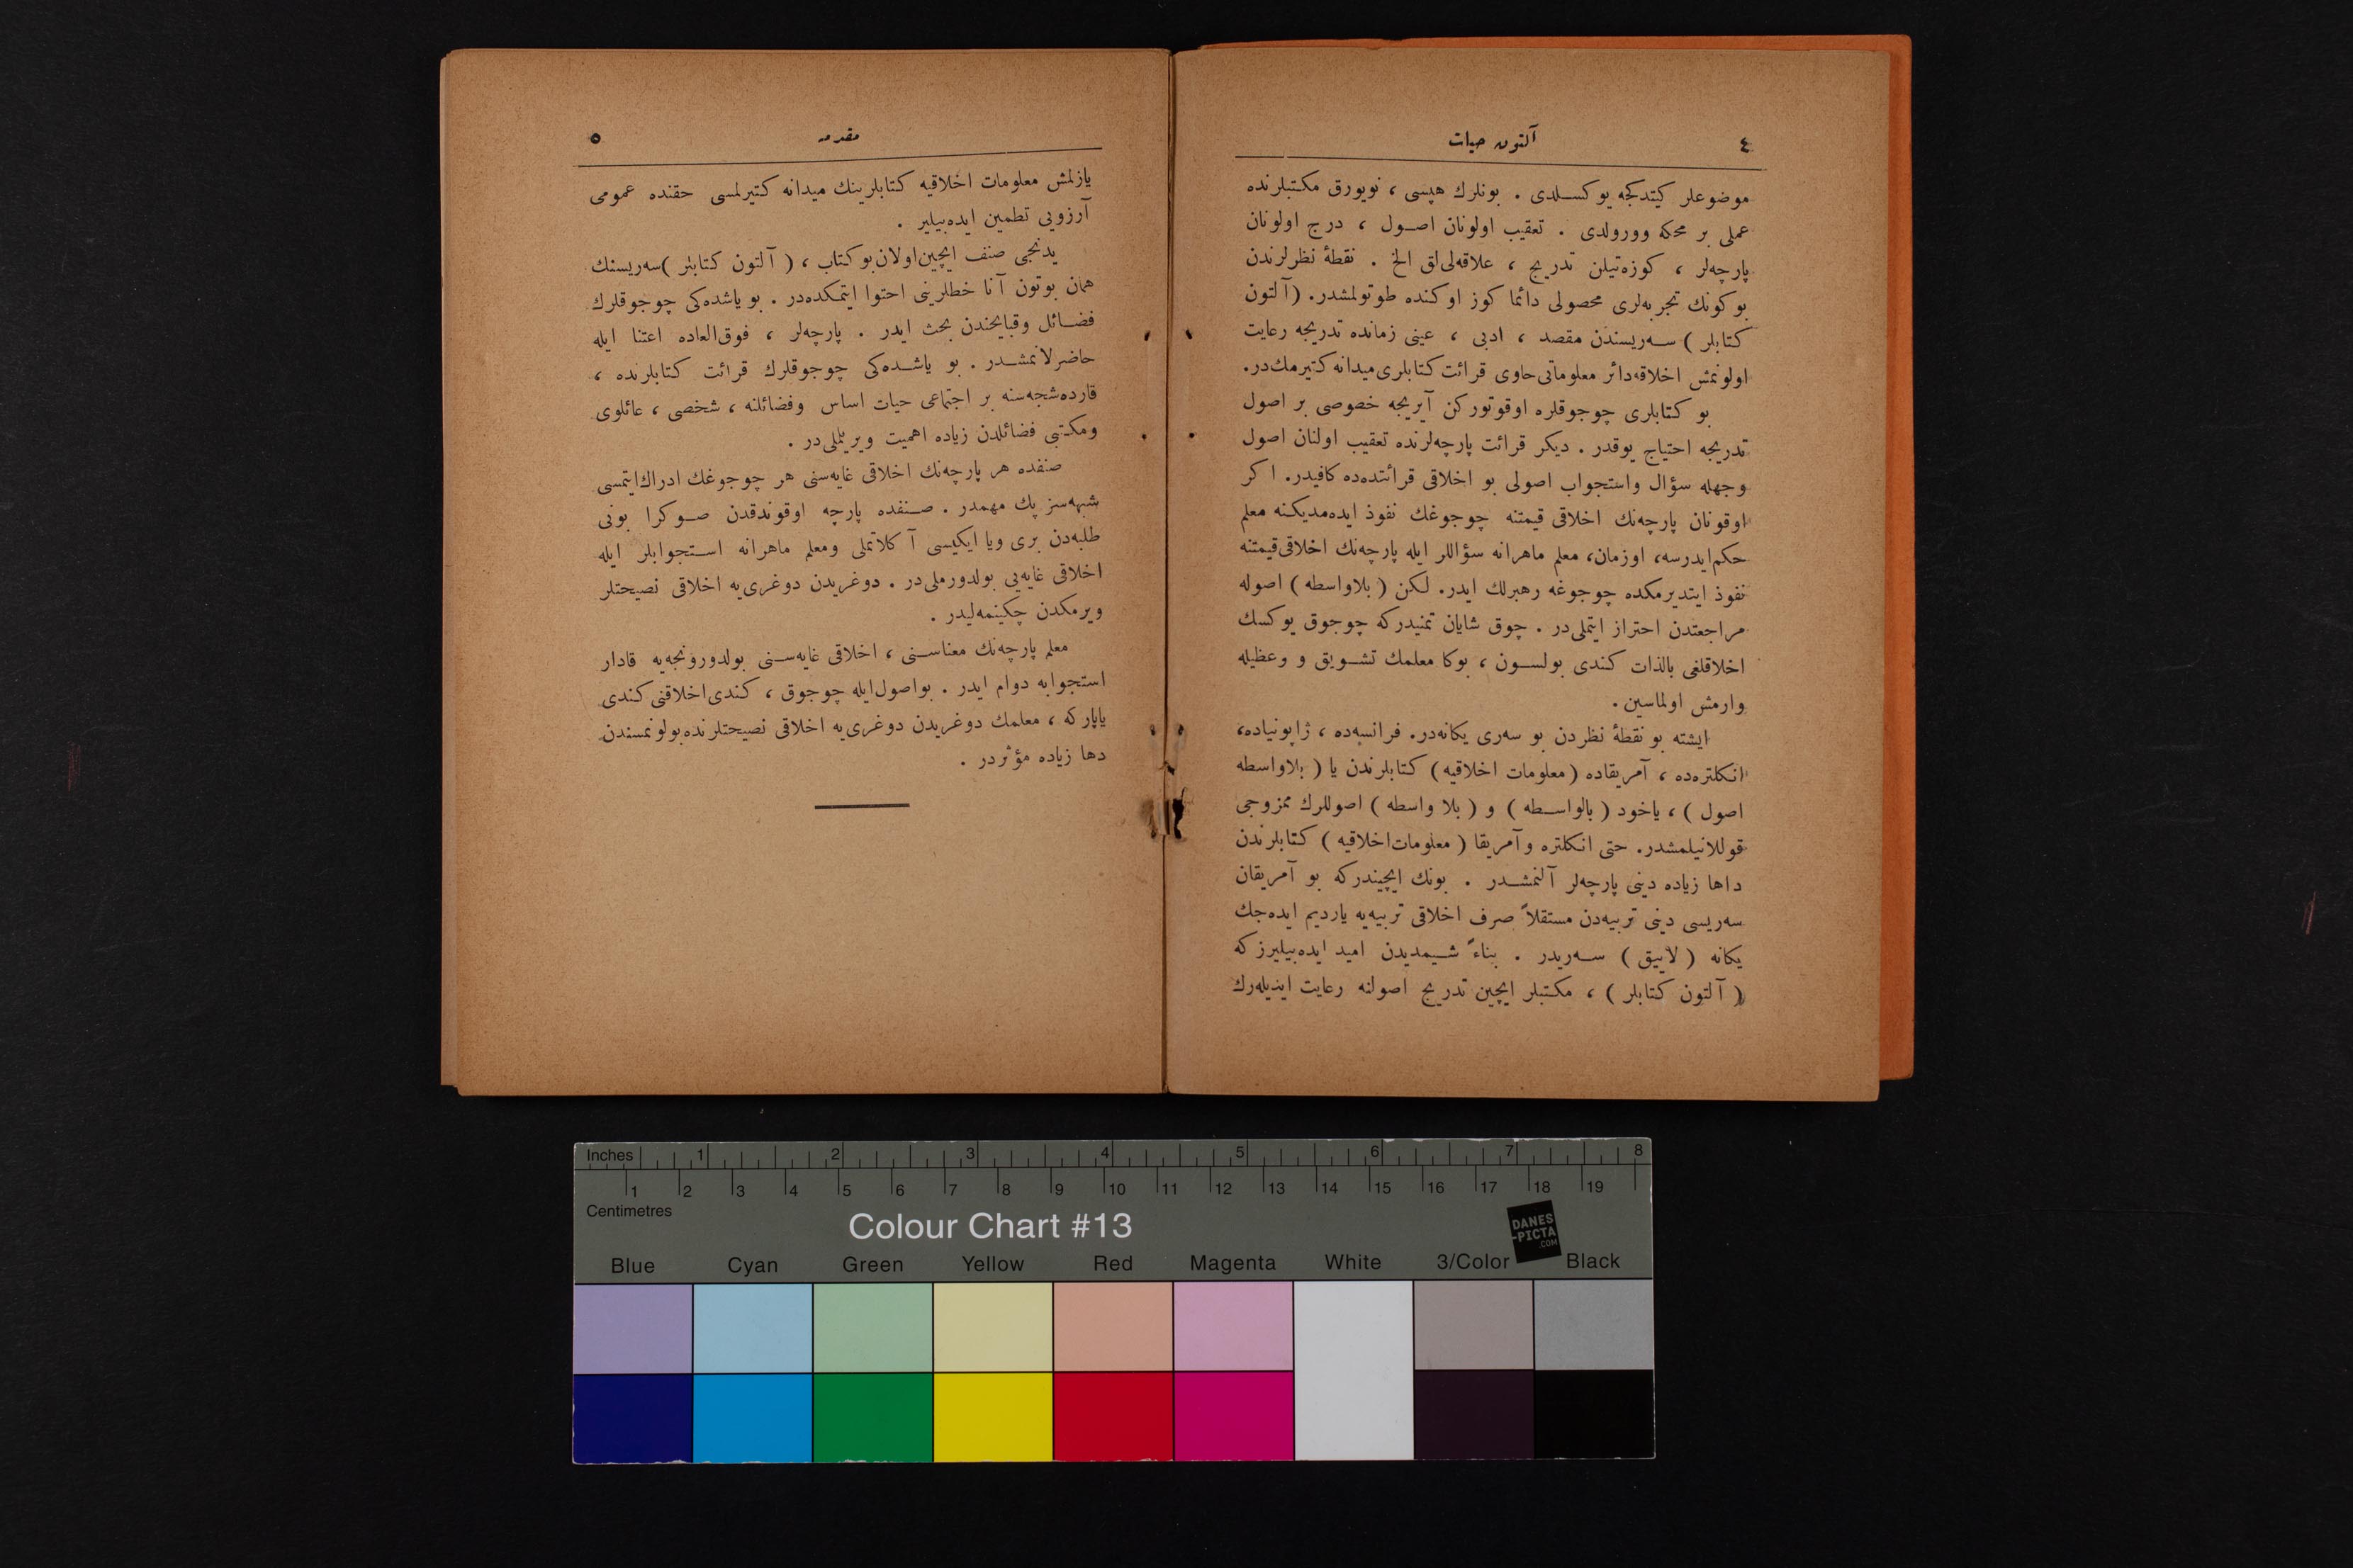 ٤
آلتون حیات
موضوعلر کیتدکجه یوکسلدی . بونلرك هپسی ، نویورق مکتبلرنده
عملی بر محکه وورولدی . تعقیب اولونان اصول ، درج اولونان
پارچه‌لر ، کوزه‌تیلن تدریج ، علاقه‌لی‌لق الخ . نقطهٔ نظرلرندن
بوکونك تجربه‌لری محصولی دائما کوز اوکنده طوتولمشدر. (آلتون
کتابلر) سه‌ریسندن مقصد ، ادبی ، عینی زمانده تدریجه رعایت
اولونمش اخلاقه‌دائر معلوماتی‌حاوی قرائت‌کتابلری‌میدانه‌کتیرمك‌در.
بو کتابلری چوجوقلره اوقوتورکن آیریجه خصوصی بر اصول
تدریجه احتیاج یوقدر . دیکر قرائت پارچه‌لرنده تعقیب اولنان اصول
وجهله سؤال واستجواب اصولی بو اخلاقی قرائتده‌ده کافیدر. اکر
اوقونان پارچه‌نك اخلاقی قیمتنه چوجوغك نفوذ ایده‌مدیکنه معلم
حکم‌ایدرسه، اوزمان، معلم ماهرانه سؤاللر ایله پارچه‌نك اخلاقی‌قیمتنه
نفوذ ایتدیرمکده چوجوغه رهبرلك ایدر. لکن (بلاواسطه) اصوله
مراجعتدن احتراز ایتملی‌در . چوق شایان تمنیدرکه چوجوق یوکسك
اخلاقلغی بالذات کندی بولسون ، بوکا معلمك تشویق و وعظیله
وارمش اولماسین.
ایشته بو نقطهٔ نظردن بو سه‌ری یکانه‌در. فرانسه‌ده ، ژاپونیاده،
انکلتره‌ده ، آمریقاده (معلومات اخلاقیه) کتابلرندن یا (بلاواسطه
اصول) ، یاخود (بالواسطه) و (بلا واسطه) اصوللرك ممزوجی
قوللانیلمشدر. حتی انکلتره وآمریقا (معلومات‌اخلاقیه) کتابلرندن
داها زیاده دینی پارچه‌لر آلنمشدر . بونك ایچیندرکه بو آمریقان
سه‌ریسی دینی تربیه‌دن مستقلاً صرف اخلاقی تربیه‌یه یاردیم ایده‌جك
یکانه (لاییق) سه‌ریدر . بناءً شیمدیدن امید ایده‌بیلیرزکه
(آلتون کتابلر) ، مکتبلر ایچین تدریج اصولنه رعایت ایدیله‌رك
مقدمه
٥
یازلمش معلومات اخلاقیه کتابلرینك میدانه کتیرلمسی حقنده عمومی
آرزویی تطمین ایده‌بیلیر .
یدنجی صنف ایچین‌اولان‌بوکتاب ، (آلتون کتابلر) سه‌ریسنك
همان بوتون آنا خطلرینی احتوا ایتمکده‌در . بو یاشده‌کی چوجوقلرك
فضائل وقبایحندن بحث ایدر . پارچه‌لر ، فوق‌العاده اعتنا ایله
حاضرلانمشدر . بو یاشده‌کی چوجوقلرك قرائت کتابلرنده ،
قارده‌شجه‌سنه بر اجتماعی حیات اساس وفضائلنه ، شخصی ، عائلوی
ومکتبی فضائلدن زیاده اهمیت ویریلملی‌در .
صنفده هر پارچه‌نك اخلاقی غایه‌سنی هر چوجوغك ادراك‌ایتمسی
شبهه‌سز پك مهمدر . صنفده پارچه اوقوندقدن صوکرا بونی
طلبه‌دن بری ویا ایکیسی آکلاتملی ومعلم ماهرانه استجوابلر ایله
اخلاقی غایه‌یی بولدورملی‌در . دوغریدن دوغری‌یه اخلاقی نصیحتلر
ویرمکدن چکینمه‌لیدر .
معلم پارچه‌نك معناسنی ، اخلاقی غایه‌سنی بولدورونجه‌یه قادار
استجوابه دوام ایدر . بواصول‌ایله چوجوق ، کندی‌اخلاقنی‌کندی
یاپارکه ، معلمك دوغریدن دوغری‌یه اخلاقی نصیحتلرنده‌بولونمسندن
دها زیاده مؤثردر .
Inches 1 2 3 4 5 6 7 8
1 2 3 4 5 6 7 8 9 10 11 12 13 14 15 16 17 18 19
Centimetres
Colour Chart #13
DANES
-PICTA
.COM
Blue Cyan Green Yellow Red Magenta White 3/Color Black